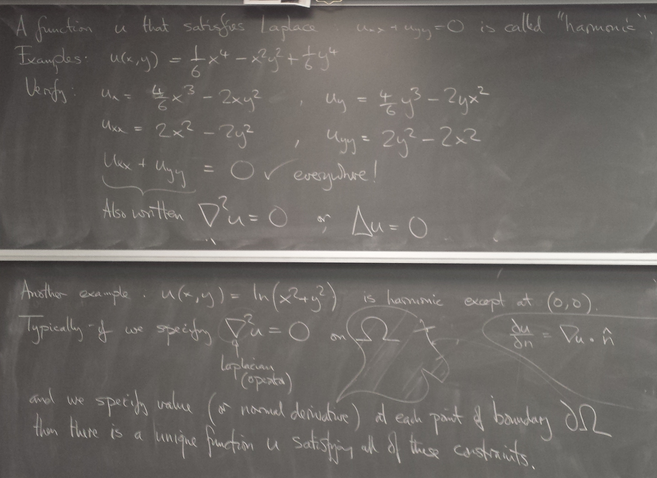 A function u that satisfies Laplace uₓₓ + u_yy = 0 is called "harmonic".
Examples: u(x,y) = 1/6 x⁴ - x²y² + 1/6 y⁴
Verify: uₓ = 4/6 x³ - 2xy² , u_y = 4/6 y³ - 2yx²
uₓₓ = 2x² - 2y² , u_yy = 2y² - 2x²
uₓₓ + u_yy = 0 ✓ everywhere!
Also written ∇²u = 0 or Δu = 0
Another example. u(x,y) = ln(x²+y²) is harmonic except at (0,0).
Typically if we specify ∇²u = 0 on Ω du/dn = ∇u · n̂
Laplacian
(operator)
and we specify value (or normal derivative) at each point of boundary ∂Ω
then there is a unique function u satisfying all of these constraints.